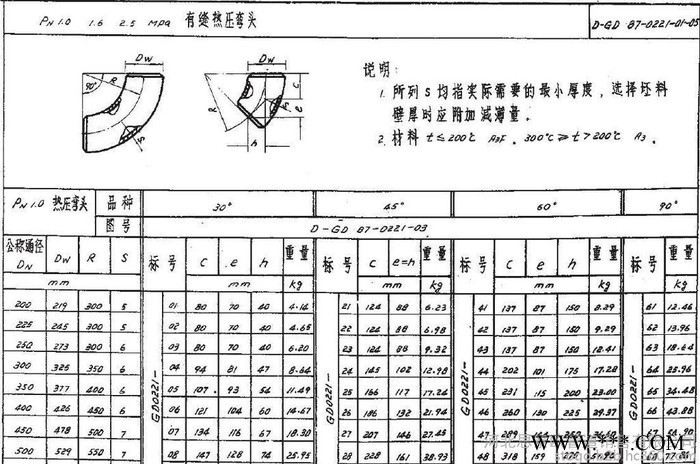 PN 1.0 1.6 2.5 MPa 有缝热压弯头 D-GD 87-0221-01-05
DW DW
R 90° S R S c e h
说明:
1. 所列 S 均指实际需要的最小厚度, 选择坯料
壁厚时应附加减薄量。
2. 材料 t≤200℃ A3F. 300℃≥t>200℃ A3.
PN 1.0 热压弯头 品种 30° 45° 60° 90°
图号 D-GD 87-0221-03
公称通径 DN DW R S 标号 c e h 重量 标号 c e=h 重量 标号 c e h 重量 标号 重量
mm mm kg mm kg mm kg kg
GD0221- GD0221- GD0221- GD0221-
200 219 300 5 01 80 70 40 4.14 21 124 88 6.23 41 137 87 150 8.29 61 12.46
225 245 300 5 02 80 70 40 4.65 22 124 88 6.98 42 137 87 150 9.29 62 13.96
250 273 300 6 03 80 70 40 6.20 23 124 88 9.32 43 137 87 150 12.41 63 18.64
300 325 350 6 04 94 81 47 8.64 24 145 102 12.98 44 202 101 175 17.28 64 25.96
350 377 400 6 05 107 93 54 11.49 25 166 117 17.24 45 231 115 200 23.00 65 34.48
400 426 450 6 06 121 104 60 14.67 26 186 132 21.94 46 260 130 225 29.37 66 43.88
450 478 500 7 07 134 116 67 18.30 27 207 146 27.45 47 289 67
500 529 550 7 08 147 128 74 25.95 28 228 161 38.93 48 318 159 68